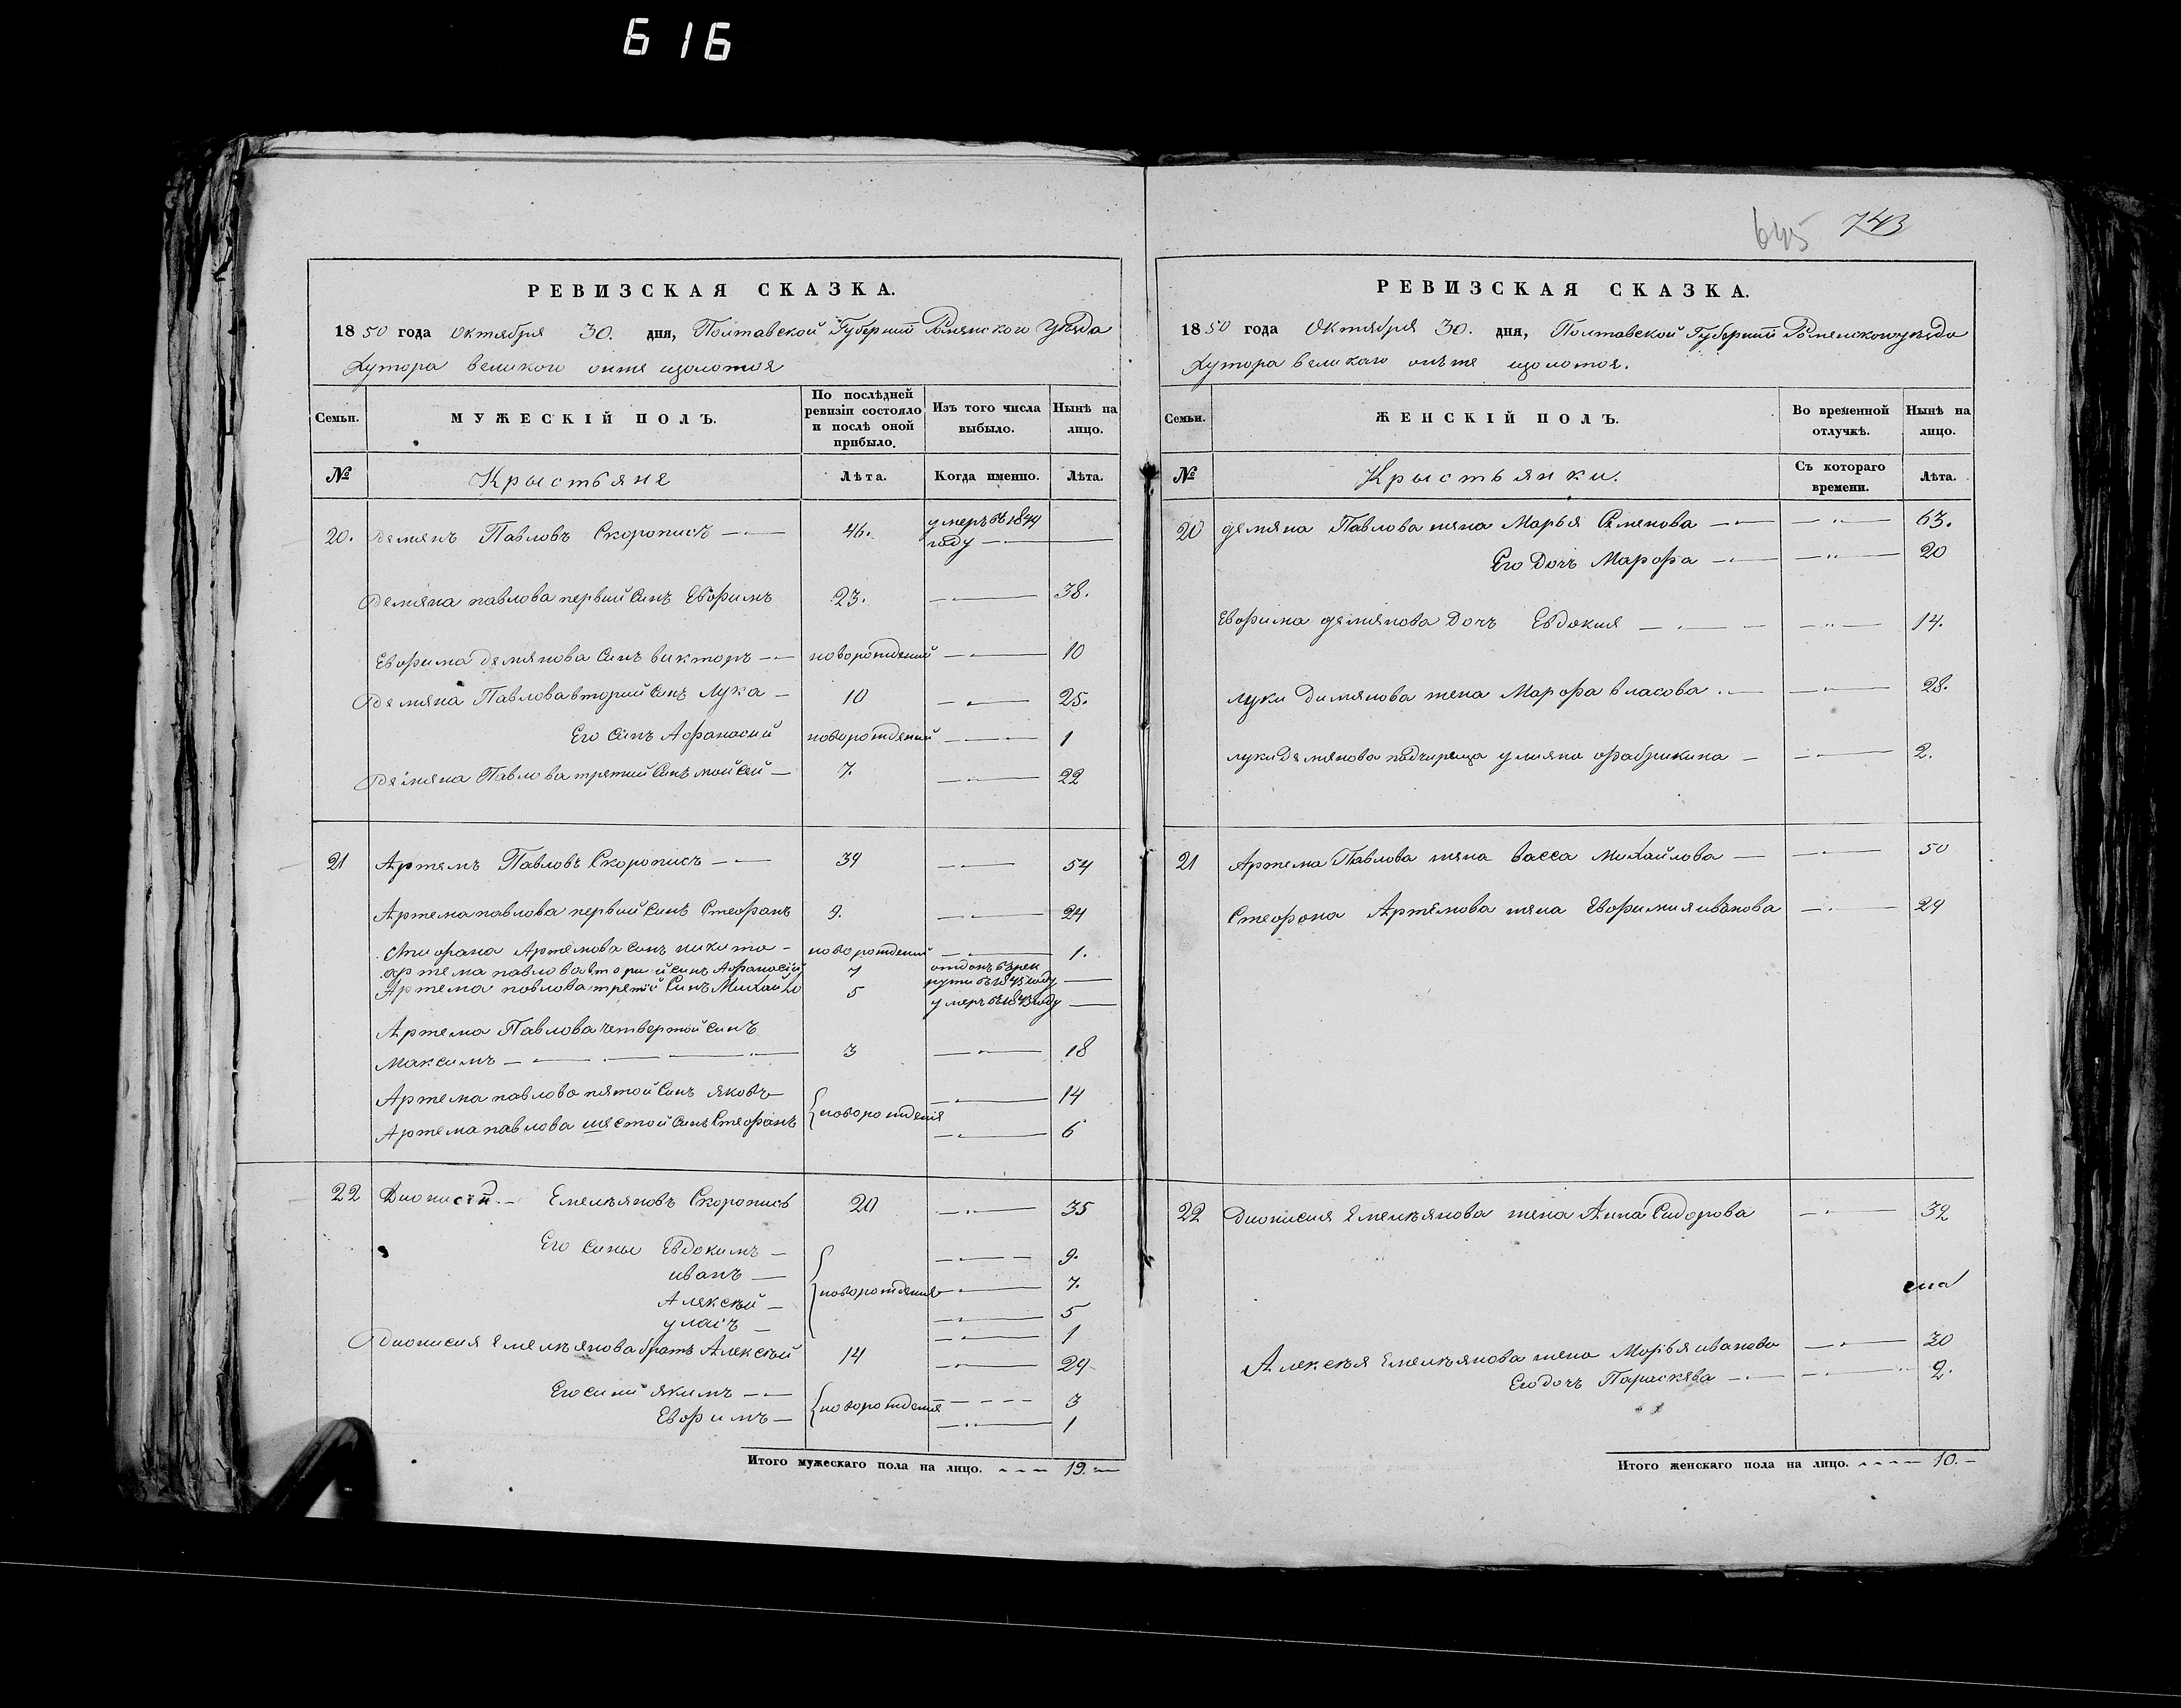 616
645 743
РЕВИЗСКАЯ СКАЗКА.
1850 года Октября 30. дня, Полтавской Губернии Роменского уезда
Хутора великого
Семьи. МУЖЕСКІЙ ПОЛЪ. По послѣдней ревизіи состояло и послѣ оной прибыло. Изъ того числа выбыло. Нынѣ на лицо.
№ Крыстьяне Лѣта. Когда именно. Лѣта.
20. демянъ Павловъ Скорописъ 46. умеръ въ 1844 году
демяна павлова первый синъ Евфимъ 23. 38.
Евфима демянова синъ викторъ новорождений 10
демяна Павлова вторий синъ Лука 10 25.
Его синъ Афанасий новорождений 1
демяна Павлова третий синъ мойсей 7. 22
21 Артемъ Павловъ Скорописъ 39 54
Артема павлова первий синъ Стефанъ 9. 24
Стифана Артемова синъ никита новорождений 1.
артема павлова вторий синъ Афанасій 7 отданъ въ рекруты въ 1845 году
Артема павлова третій синъ Михайло 5 умеръ в 1843 году
Артема Павлова четвертой синъ
Максимъ 3 18
Артема павлова пятой синъ яковъ новорождения 14
Артема павлова шестой синъ Стефанъ 6
22 Дионисій Емельяновъ Скорописъ 20 35
Его сины Евдокимъ 9.
иванъ новорождения 7.
Алексѣй 5
уласъ 1
дионисия Емельянова братъ Алексѣй 14 29
Его сини якимъ новорождения 3
Евфимъ 1
Итого мужескаго пола на лицо. 19.
РЕВИЗСКАЯ СКАЗКА.
1850 года Октября 30. дня, Полтавской Губернии Роменского уезда
Хутора великаго
Семьи. ЖЕНСКІЙ ПОЛЪ. Во временной отлучкѣ. Нынѣ на лицо.
№ Крыстьянки. Съ котораго времени. Лѣта.
20 демяна Павлова жена Марья Семенова 63.
Его Дочъ Марфа 20
Евфима демянова Дочъ Евдокия 14.
луки Димянова жена Марфа власова 28.
луки Демянова падчерица уляна 2.
21 Артема Павлова жена васса Михайлова 50
Стефана Артемова жена Евфимия иванова 24
22 Дионисия Емельянова жена Анна Сидорова 32
Алексѣя Емельянова жена Марья иванова 30
Его дочъ Параскева 2.
Итого женскаго пола на лицо. 10.